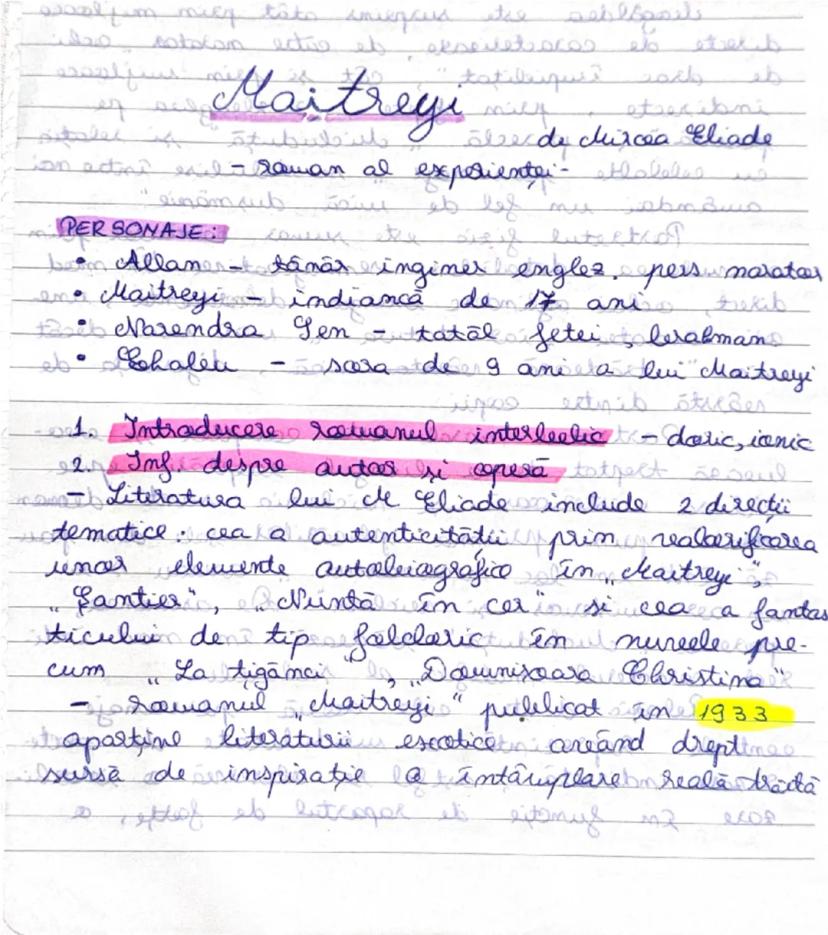 Maitreyi
de Mircea Eliade
- roman al experienței -
PERSONAJE:
• Allan - tânăr inginer englez, pers narator
• Maitreyi - indiancă de 17 ani
• Narendra Sen - tatăl fetei, brahman
• Chabou - sora de 9 ani a lui Maitreyi
1. Introducere romanul interbelic - doric, ionic
2. Inf despre autor și operă
- Literatura lui M Eliade include 2 direcții
tematice: cea a autenticității prin valorificarea
unor elemente autobiografice în „Maitreyi",
„Șantier", „Nuntă în cer" și cea a fantas
ticului de tip folcloric în nuvele pre-
cum „La țigănci", „Domnișoara Christina"
- romanul „Maitreyi" publicat în 1933
aparține literaturii exotice având drept
sursă de inspirație o întâmplare reală trăită